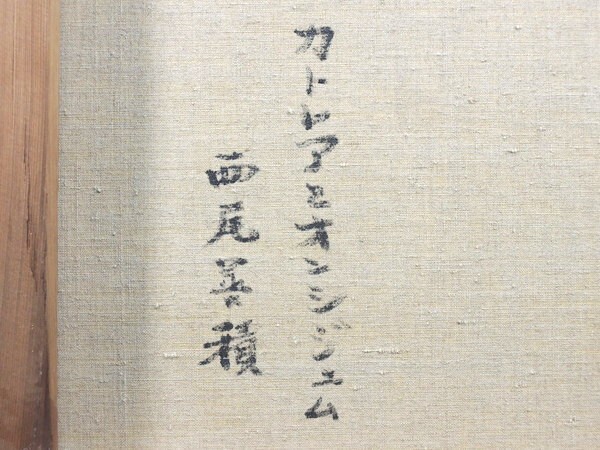 カトレアとオンシジューム
西尾善積